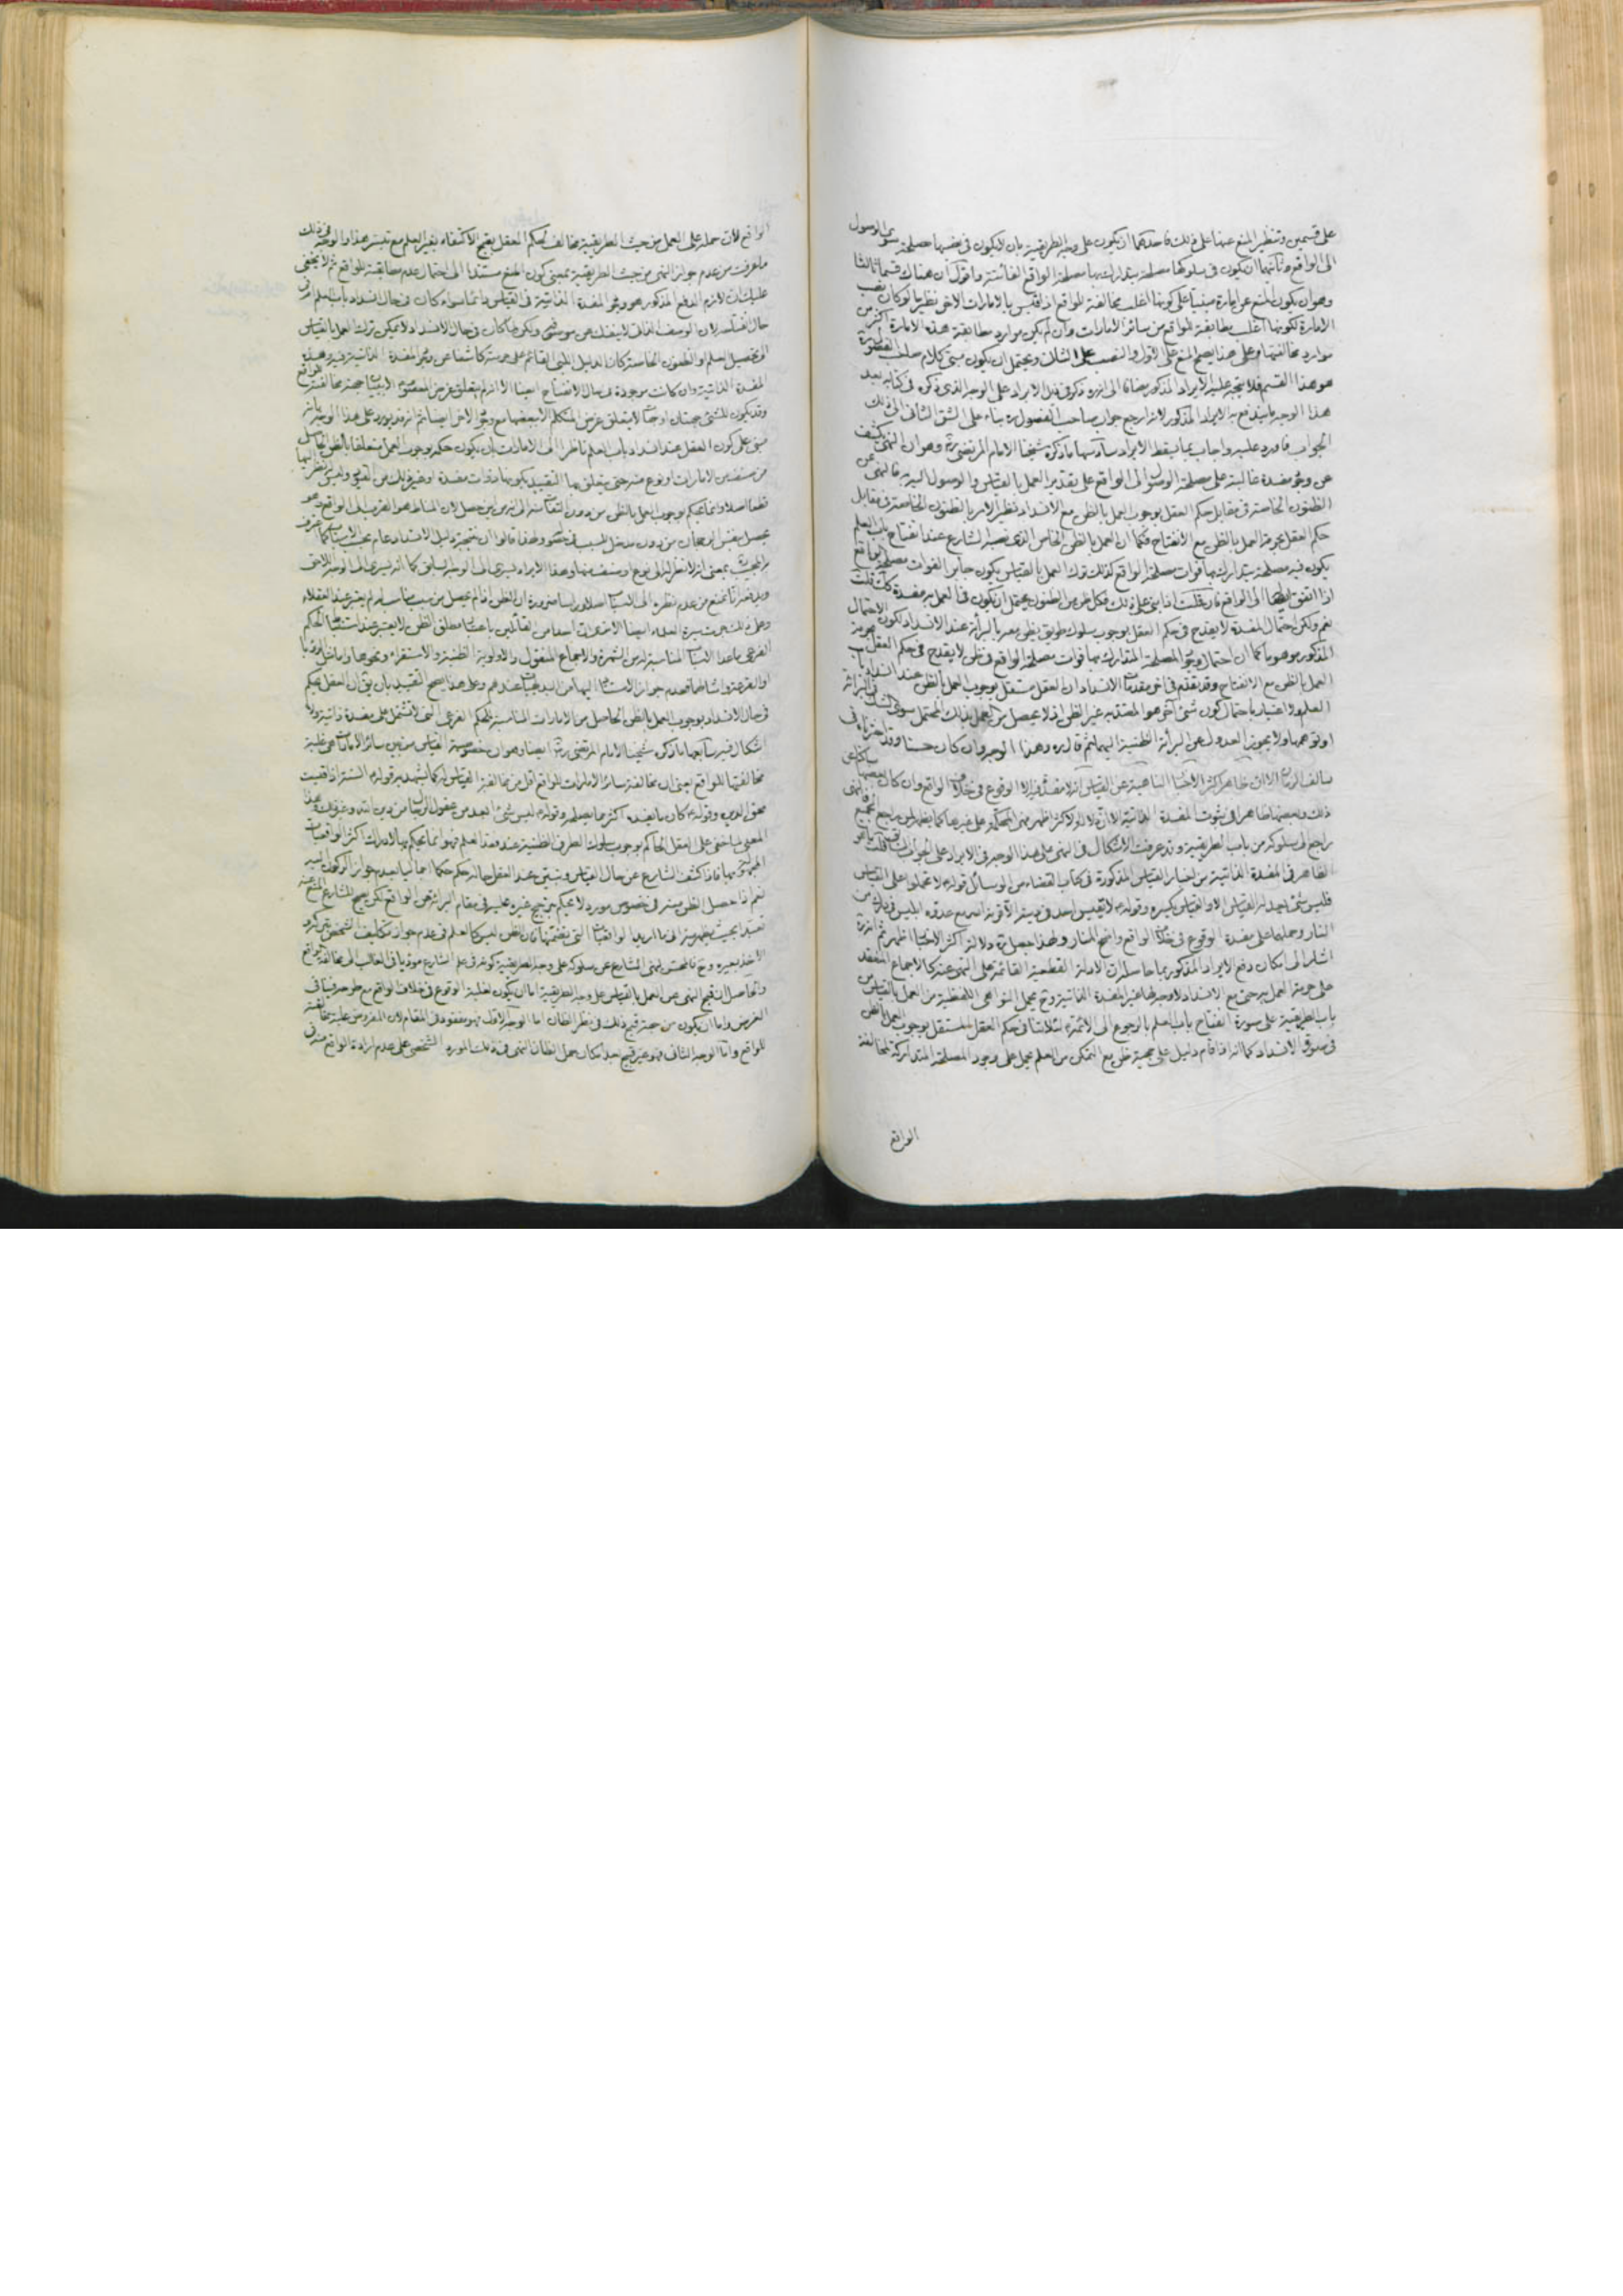 على قسمين وتنظير المنع عنها على ذلك فاحدهما ان يكون على وجه الطريقية بان لا يكون في نفسها مصلحة سوى الوصول
الى الواقع وثانيهما ان يكون في سلوكها مصلحة يتدارك بها مصلحة الواقع الفائتة واقول ان هناك قسما ثالثا
وهو ان يكون المنع عن امارة مبنيا على كونها اغلب مخالفة للواقع اذا قيس بالامارات الاخر نظير ما لو كان نصب
الامارة لكونها اغلب مطابقة للواقع من سائر الامارات وان لم يكن موارد مطابقة هذه الامارة اكثر من
موارد مخالفتها وعلى هذا يصح المنع على الاول والنصب على الثالث ويحتمل ان يكون مبنى كلام صاحب الفصول
هو هذا القسم فلا يتجه عليه الايراد المذكور مضافا الى انه ره ذكر في ذيل الايراد على الوجه الذي ذكره في كتابه بعد
هذا الوجه ما يندفع به الايراد المذكور لانه ارجع جواب صاحب الفصول ره بناء على الشق الثاني الى ذلك
الجواب فاورد عليه واجاب بما يسقط الايراد سادسها ما ذكره شيخنا الامام المرتضى ره وهو ان النهى يكشف
عن وجود مفسدة غالبة على مصلحة الوصول الى الواقع على تقدير العمل بالقياس والوصول اليه به فالنهى عن
الظنون الخاصة في مقابل حكم العقل بوجوب العمل بالظن مع الانسداد نظير الامر بالظنون الخاصة في مقابل
حكم العقل بحرمة العمل بالظن مع الانفتاح فكما ان العمل بالظن الخاص الذي نصبه الشارع عند انفتاح باب العلم
يكون فيه مصلحة يتدارك بها فوات مصلحة الواقع كذلك ترك العمل بالقياس يكون جابرا لفوات مصلحة الواقع
اذا اتفق ايصالها الى الواقع فان قلت اذا بنى على ذلك فكل ظن من الظنون يحتمل ان يكون في العمل به مفسدة كك قلت
نعم ولكن احتمال المفسدة لا يقدح في حكم العقل بوجوب سلوك طريق يظن معه بالبرائة عند الانسداد لكون الاحتمال
المذكور موهوما كما ان احتمال وجود المصلحة المتدارك بها فوات مصلحة الواقع في ظن لا يقدح في حكم العقل بحرمة
العمل بالظن مع الانفتاح وقد تقدم في آخر مقدمات الانسداد ان العقل مستقل بوجوب العمل بالظن عند انسداد باب
العلم ولا اعتبار باحتمال كون شئ آخر هو المتعبد به غير الظن اذ لا يحصل من العمل بذلك المحتمل سوى الشك في البرائة
او توهمها ولا يجوز العدول عن البرائة الظنية اليهما ثم قال ره وهذا الوجه وان كان حسنا وقد اخترناه في
سالف الزمان الا ان ظاهر اكثر الاخبار الناهية عن القياس انه لا مفسدة فيه الا الوقوع في خلاف الواقع وان كان بعضها ساكتا عن
ذلك وبعضها ظاهر في ثبوت المفسدة الذاتية الا ان دلالة الاكثر اظهر فهى الحاكمة على غيرها كما يظهر لمن راجع الجميع فالنهى
راجع الى سلوكه من باب الطريقية وقد عرفت الاشكال في النهى على هذا الوجه في الايراد على الجواب السابق قلت
الظاهر في المفسدة الذاتية من اخبار القياس المذكورة في كتاب القضاء من الوسائل قوله لا تحملوا على القياس
فليس شئ يعدله القياس الا والقياس يكسره
النار وحملها على مفسدة الوقوع في خلاف الواقع واضح المنار ولهذا جعل ره دلالة اكثر الاخبار اظهر ثم انه ره
اشار الى امكان دفع الايراد المذكور بما حاصله ان الادلة القطعية القائمة على النهى عنه كالاجماع المنعقد
على حرمة العمل به حتى مع الانسداد لا وجه لها غير المفسدة الذاتية وح يحمل النواهى اللفظية عن العمل بالقياس من
باب الطريقية على صورة انفتاح باب العلم بالرجوع الى الائمة لئلا ينافي حكم العقل المستقل بوجوب العمل بالظن
في صورة الانسداد كما انه اذا قام دليل على حجية ظن مع التمكن من العلم يحمل على وجود المصلحة المتداركة لمخالفة
الواقع
الواقع لان حمله على العمل من حيث الطريقية مخالف لحكم العقل بقبح الاكتفاء بغير العلم مع تيسره هذا والوجه في ذلك
ما عرفت من عدم جواز النهى من حيث الطريقية بمعنى كون المنع مستندا الى احتمال عدم مطابقته للواقع ثم لا يخفى
عليك ان لازم الدفع المذكور هو وجود المفسدة الذاتية في القياس دائما سواء كان في حال انسداد باب العلم او في
حال انفتاحه لان الوصف الذاتي لا ينفك عن موصوفه ولكن لما كان في حال الانسداد لا يمكن ترك العمل بالقياس
المفسدة الذاتية وان كانت موجودة في حال الانفتاح ايضا الا انه لم يتعلق غرض المعصوم
وقد يكون للشئ جهتان او جهات لا يتعلق غرض المتكلم الا ببعضها مع وجود الاخر ايضا ثم انه قد يورد على هذا الوجه بانه
مبنى على كون العقل عند انسداد باب العلم ناظرا الى الامارات بان يكون حكمه بوجوب العمل متعلقا بالظن الحاصل
من صنف من الامارات او نوع منه حتى يتعلق بها التقييد بكونها ذوات مفسدة او غير ذلك من القيود وليس له نظر اليها
قطعا اصلا وانما يحكم بوجوب العمل بالظن من دون التفات الى انه من اين حصل لان المناط هو القرب الى الواقع وهو
يحصل بنفس الرجحان من دون مدخل للسبب في نظره ولهذا قالوا ان نتيجة دليل الانسداد عام بحسب الاسباب كما عرفت
ويدفعه انا نمنع من عدم نظره الى الاسباب اصلا وراسا ضرورة ان الظن اذا لم يحصل من سبب مناسب له لم يعتبر عند العقلاء
الفرعى ما عدا الاسباب المناسبة له من الشهرة والاجماع المنقول والاولوية الظنية والاستقراء ونحوها واما مثل الرؤيا
او القرعة وامثالهما فعدم جواز الاستناد اليهما من البديهيات عندهم وعلى هذا يصح التقييد بان يق ان العقل يحكم
في حال الانسداد بوجوب العمل بالظن الحاصل من الامارات المناسبة للحكم الفرعى التى لا تشتمل على مفسدة ذاتية ولا
اشكال فيه سابعها ما ذكره شيخنا الامام المرتضى ره ايضا وهو ان خصوصية القياس من بين سائر الامارات هى غلبة
مخالفتها للواقع يعنى ان مخالفة سائر الامارات للواقع اقل من مخالفة القياس له كما يشهد به قوله ان السنة اذا قيست
محق الدين وقوله كان ما يفسده اكثر مما يصلحه وقوله ليس شئ ابعد من عقول الرجال من دين الله وغير ذلك وهذا
المعنى لما خفى على العقل الحاكم بوجوب سلوك الطرق الظنية عند فقد العلم فهو انما يحكم بها لادراك اكثر الواقعيات
المجهولة بها فاذا كشف الشارع عن حال القياس وتبين عند العقل حاله فيحكم حكما اجماليا بعدم جواز الركون اليه
نعم اذا حصل الظن منه في خصوص مورد لا يحكم بترجيح غيره عليه في مقام البرائة عن الواقع لكن يصح للشارع المنع عنه
الاخذ بغيره وح فالمحسن لنهى الشارع عن سلوكه على وجه الطريقية كونه في علم الشارع مؤديا في الغالب الى مخالفة الواقع
والحاصل ان قبح النهى عن العمل بالقياس على وجه الطريقية اما ان يكون لغلبة الوقوع في خلاف الواقع مع طرحه فينافي
الغرض واما ان يكون من جهة قبح ذلك في نظر الظان اما الوجه الاول فهو مفقود في المقام لان المفروض غلبة مخالفته
للواقع واما الوجه الثاني فهو غير قبيح بعد امكان حمل الظان النهى في ذلك المورد الشخصى على عدم ارادة الواقع منه في